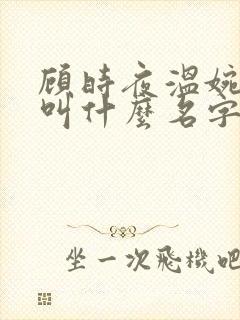 顾時夜溫婉
叫什麼名字
坐一次飛機吧